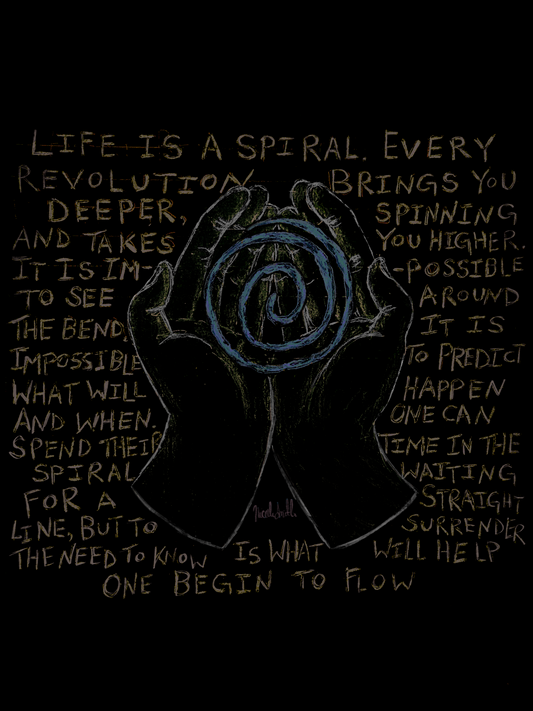 LIFE IS A SPIRAL. EVERY
REVOLUTION BRINGS YOU
DEEPER, SPINNING
AND TAKES YOU HIGHER.
IT IS IM- -POSSIBLE
TO SEE AROUND
THE BEND, IT IS
IMPOSSIBLE TO PREDICT
WHAT WILL HAPPEN
AND WHEN. ONE CAN
SPEND THEIR TIME IN THE
SPIRAL WAITING
FOR A STRAIGHT
LINE, BUT TO SURRENDER
THE NEED TO KNOW IS WHAT WILL HELP
ONE BEGIN TO FLOW